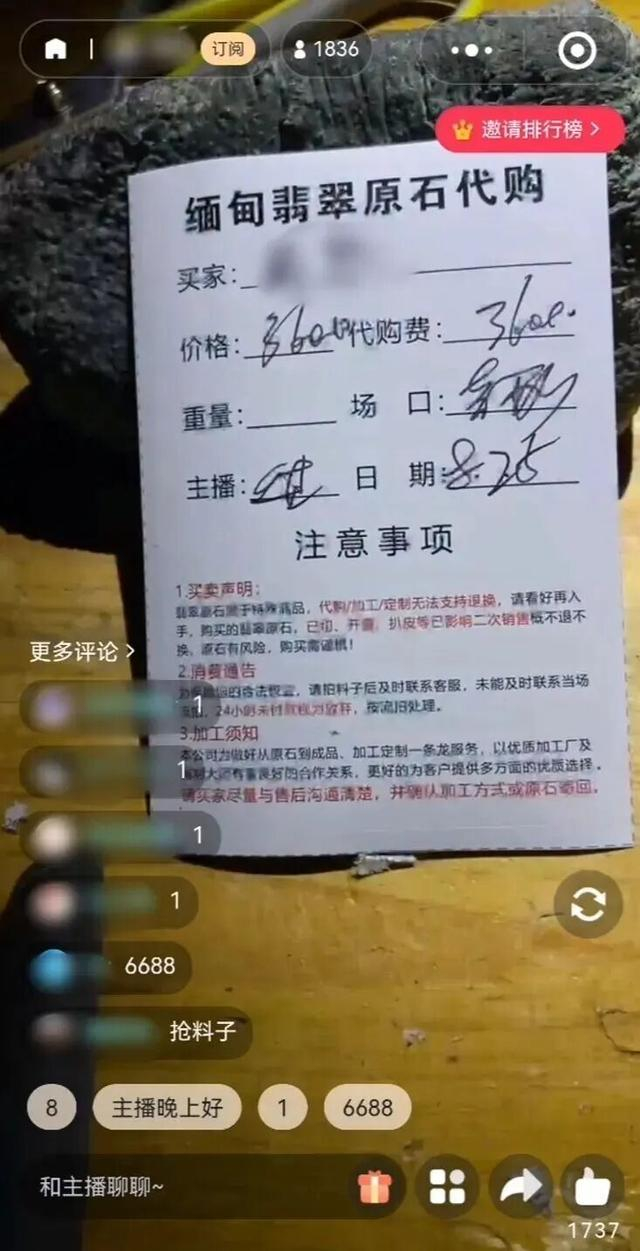 订阅
1836
邀请排行榜
缅甸翡翠原石代购
买家:
价格: 代购费:
重量: 场 口:
主播: 日 期: 8.25
注意事项
1.买卖声明:
翡翠原石属于特殊商品,代购/加工/定制无法支持退换,请看好再入
手,购买的翡翠原石,已切、开窗、扒皮等已影响二次销售概不退不
换,原石有风险,购买需谨慎!
2.消费通告
请拍料子后及时联系客服,未能及时联系当场
24小时未付款视为放弃,按流拍处理。
3.加工须知
本公司为做好从原石到成品、加工定制一条龙服务,以优质加工厂及
有着良好的合作关系,更好的为客户提供多方面的优质选择。
请买家尽量与售后沟通清楚,并确认加工方式或原石寄回。
更多评论
1
1
1
1
6688
抢料子
8 主播晚上好 1 6688
和主播聊聊~
1737